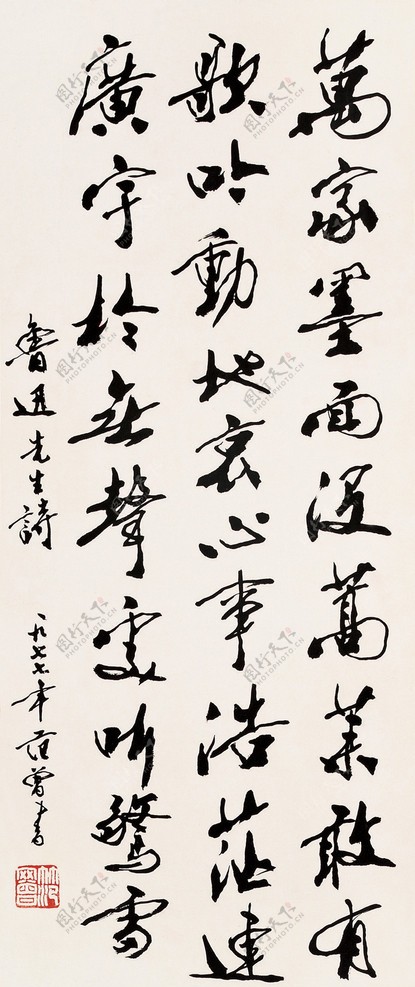 萬家墨面沒蒿萊敢有
歌吟動地哀心事浩茫連
廣宇於無聲處听驚雷
魯迅先生詩 一九七七年范曾書
图行天下 PHOTOPHOTO.CN